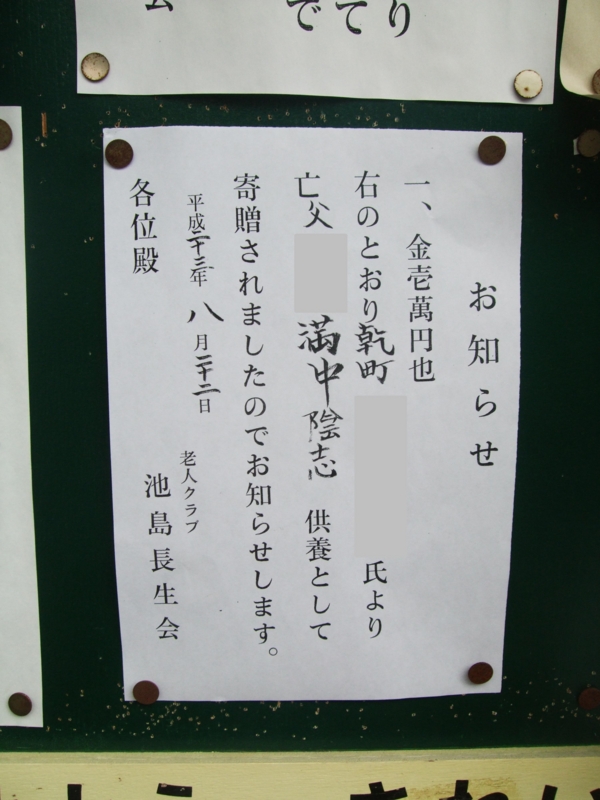 でてり
お知らせ
一、金壱萬円也
右のとおり乾町 氏より
亡父 満中陰志 供養として
寄贈されましたのでお知らせします。
平成二十三年八月二十二日
老人クラブ
池島長生会
各位殿